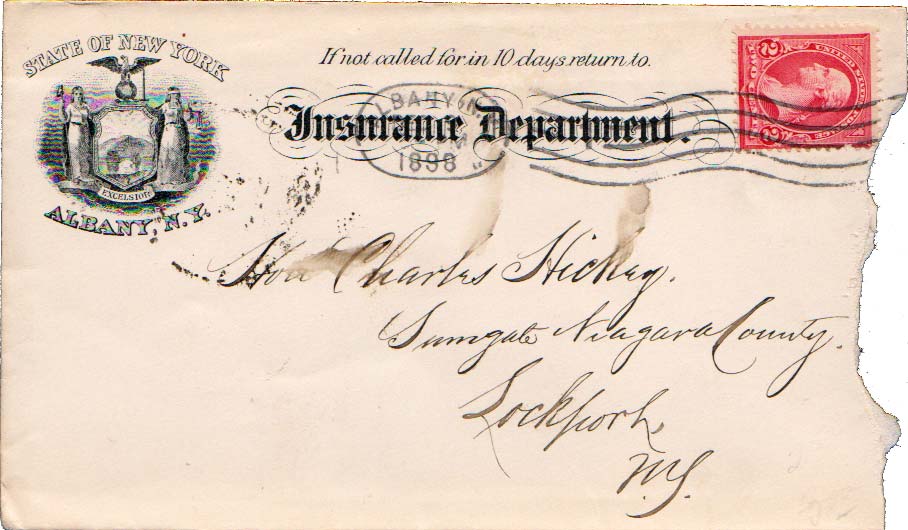 STATE OF NEW YORK
EXCELSIOR
ALBANY, N.Y.
If not called for in 10 days return to.
Insurance Department.
ALBANY, N
M
1898
2 UNITED STATES POSTAGE 2
Hon Charles Hickey.
Surrogate Niagara County.
Lockport,
N.Y.